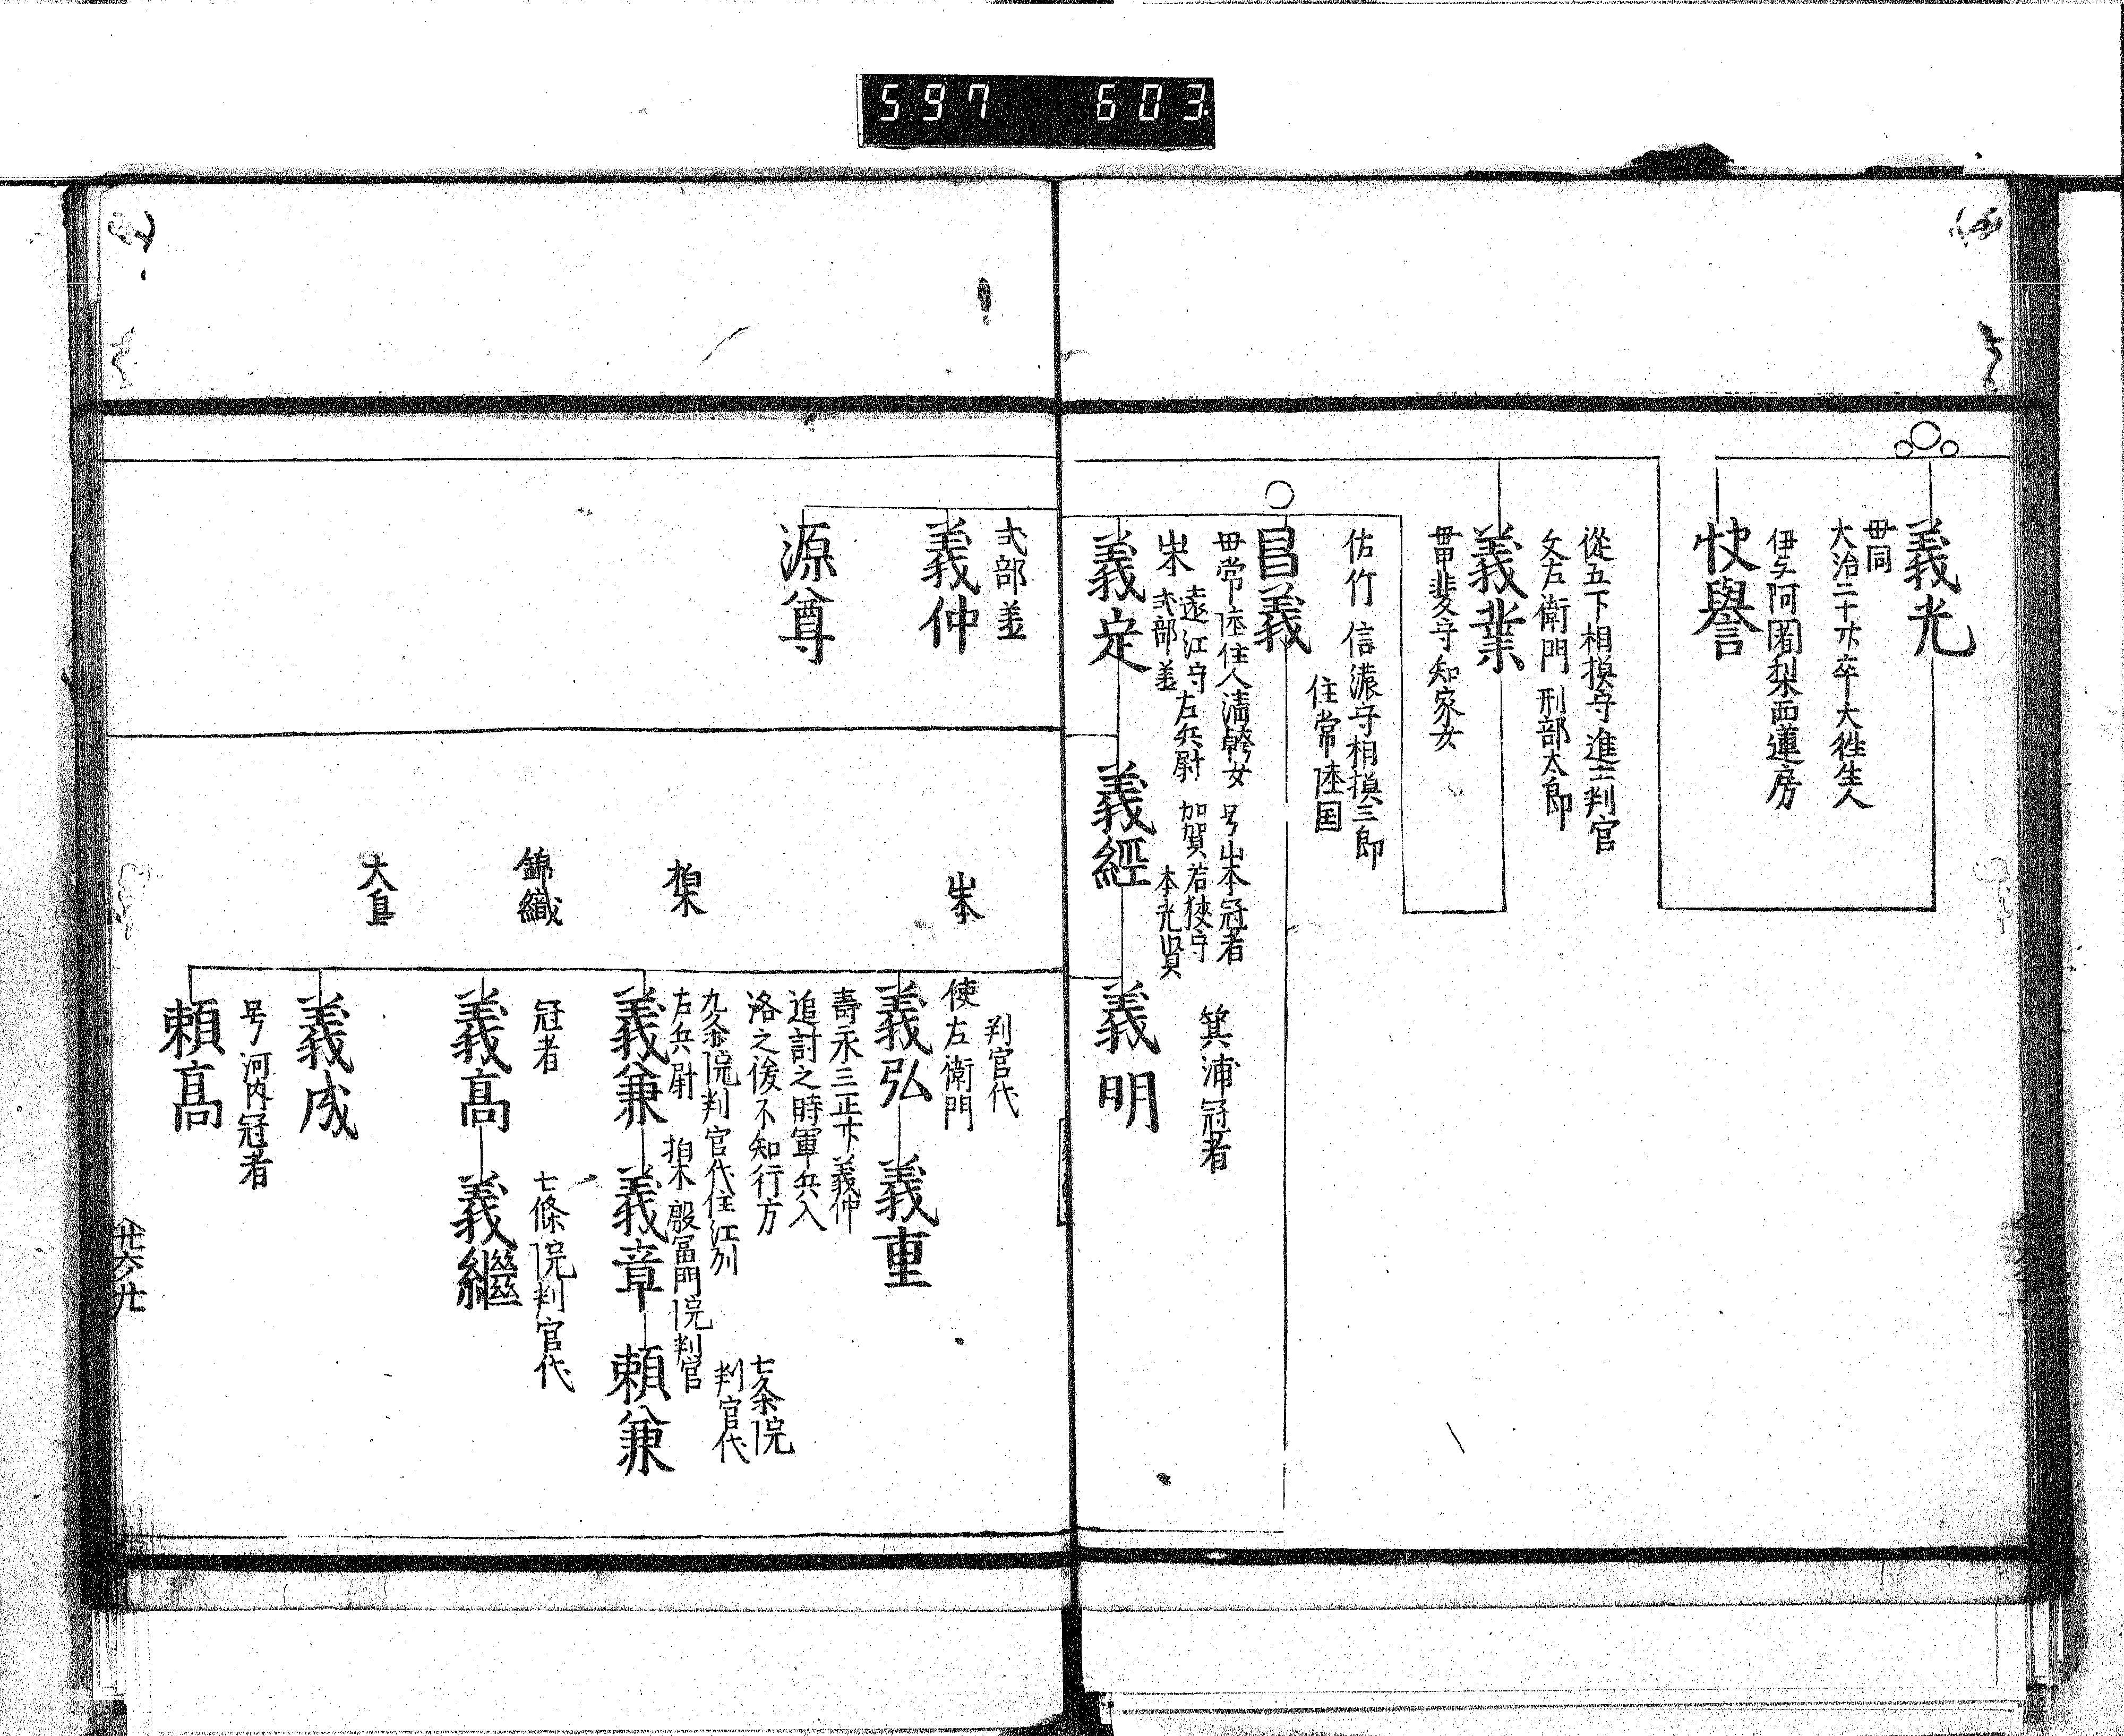 597 603
義光
母同
大治二十卒大徃生人
伊与阿闍梨西蓮房
快譽
從五下相摸守進士判官
左衛門 刑部太郎
義業
母甲斐守知家女
佐竹 信濃守相摸三郎
住常陸国
昌義
母常陸住人清幹女 号山本冠者
山本 遠江守左兵尉 加賀若狹守
義定
義經
本光賢
箕浦冠者
義明
義仲
源尊
山本
判官代
使左衛門
義弘
義重
壽永三正義仲
追討之時軍兵入
洛之後不知行方
柏木
九条院判官代住江州
右兵尉
義兼
柏木 殷冨門院判官
義章
七条院
判官代
頼兼
錦織
冠者
義高
七條院判官代
義繼
大島
義成
号河内冠者
頼高
廿六